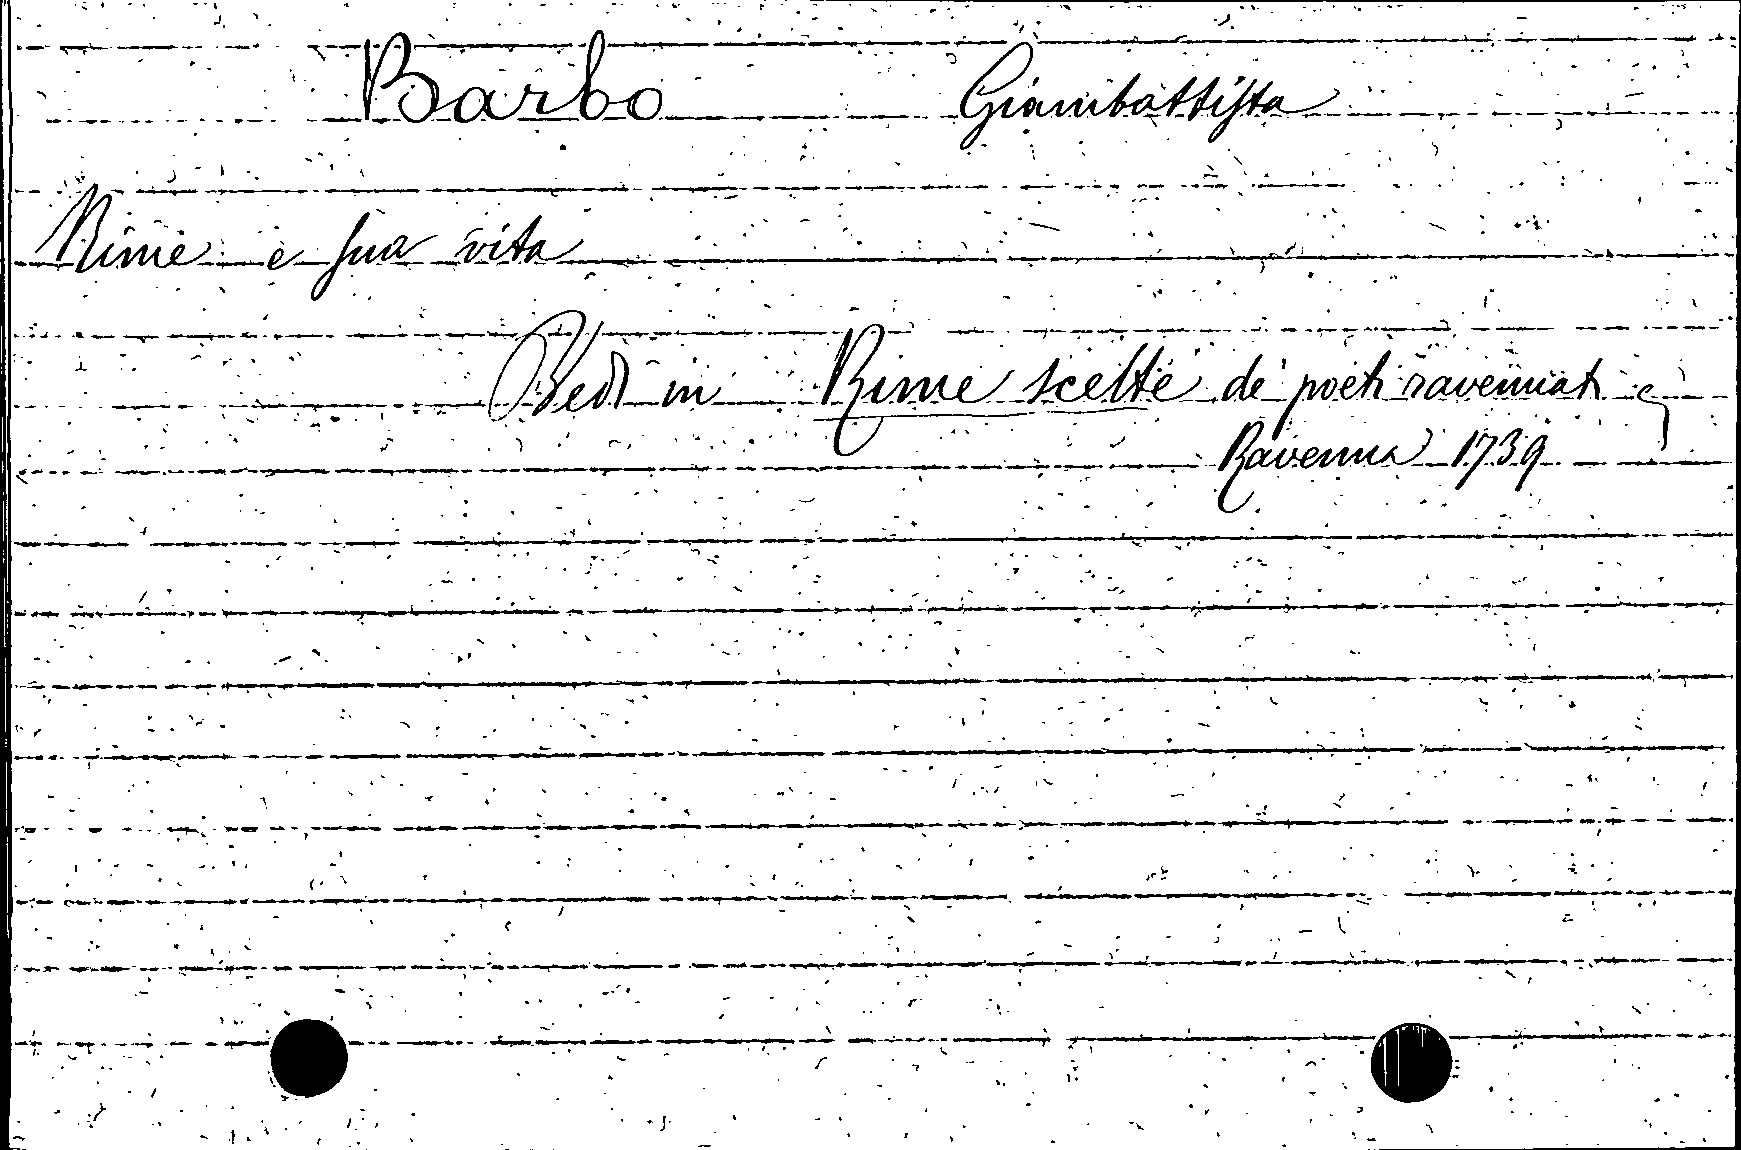 Barbo Giambattista
Rime e sua vita
Vedi in Rime scelte de' poeti ravennati
Ravenna 1739